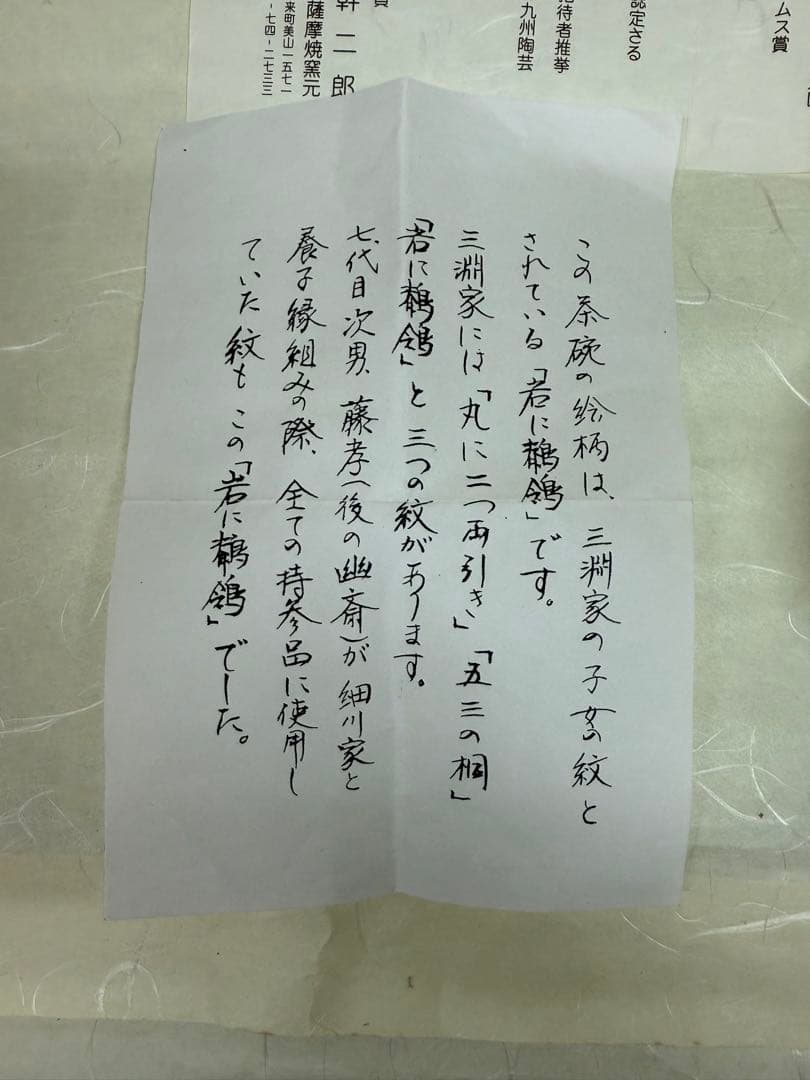 ムス賞
認定さる
招待者推挙
九州陶芸
員
幹二郎
薩摩焼窯元
来町美山一五七一
-七四-二七三三
この茶碗の絵柄は、三淵家の子女の紋と
されている「岩に鶺鴒」です。
三淵家には「丸に二つ両引き」「五三の桐」
「岩に鶺鴒」と三つの紋があります。
七代目次男、藤孝(後の幽斎)が細川家と
養子縁組みの際、全ての持参品に使用し
ていた紋もこの「岩に鶺鴒」でした。